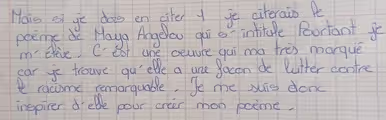 Mais si je dois en citer 1 je citerais le
poème de Maya Angelou qui s'intitule Pourtant je
m'élève. C'est une oeuvre qui ma très marqué
car je trouve qu'elle a une façon de lutter contre
le racisme remarquable. Je me suis donc
inspirer d'elle pour créer mon poème.